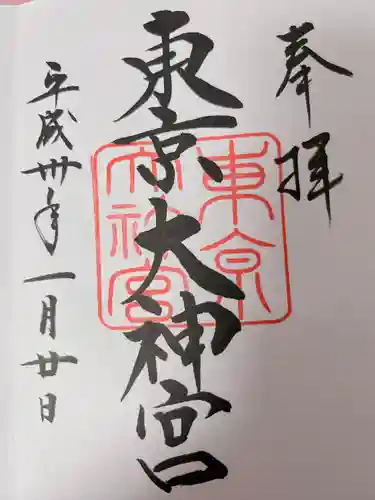 奉拝
東京大神宮
東京大神宮
平成卅年一月廿日